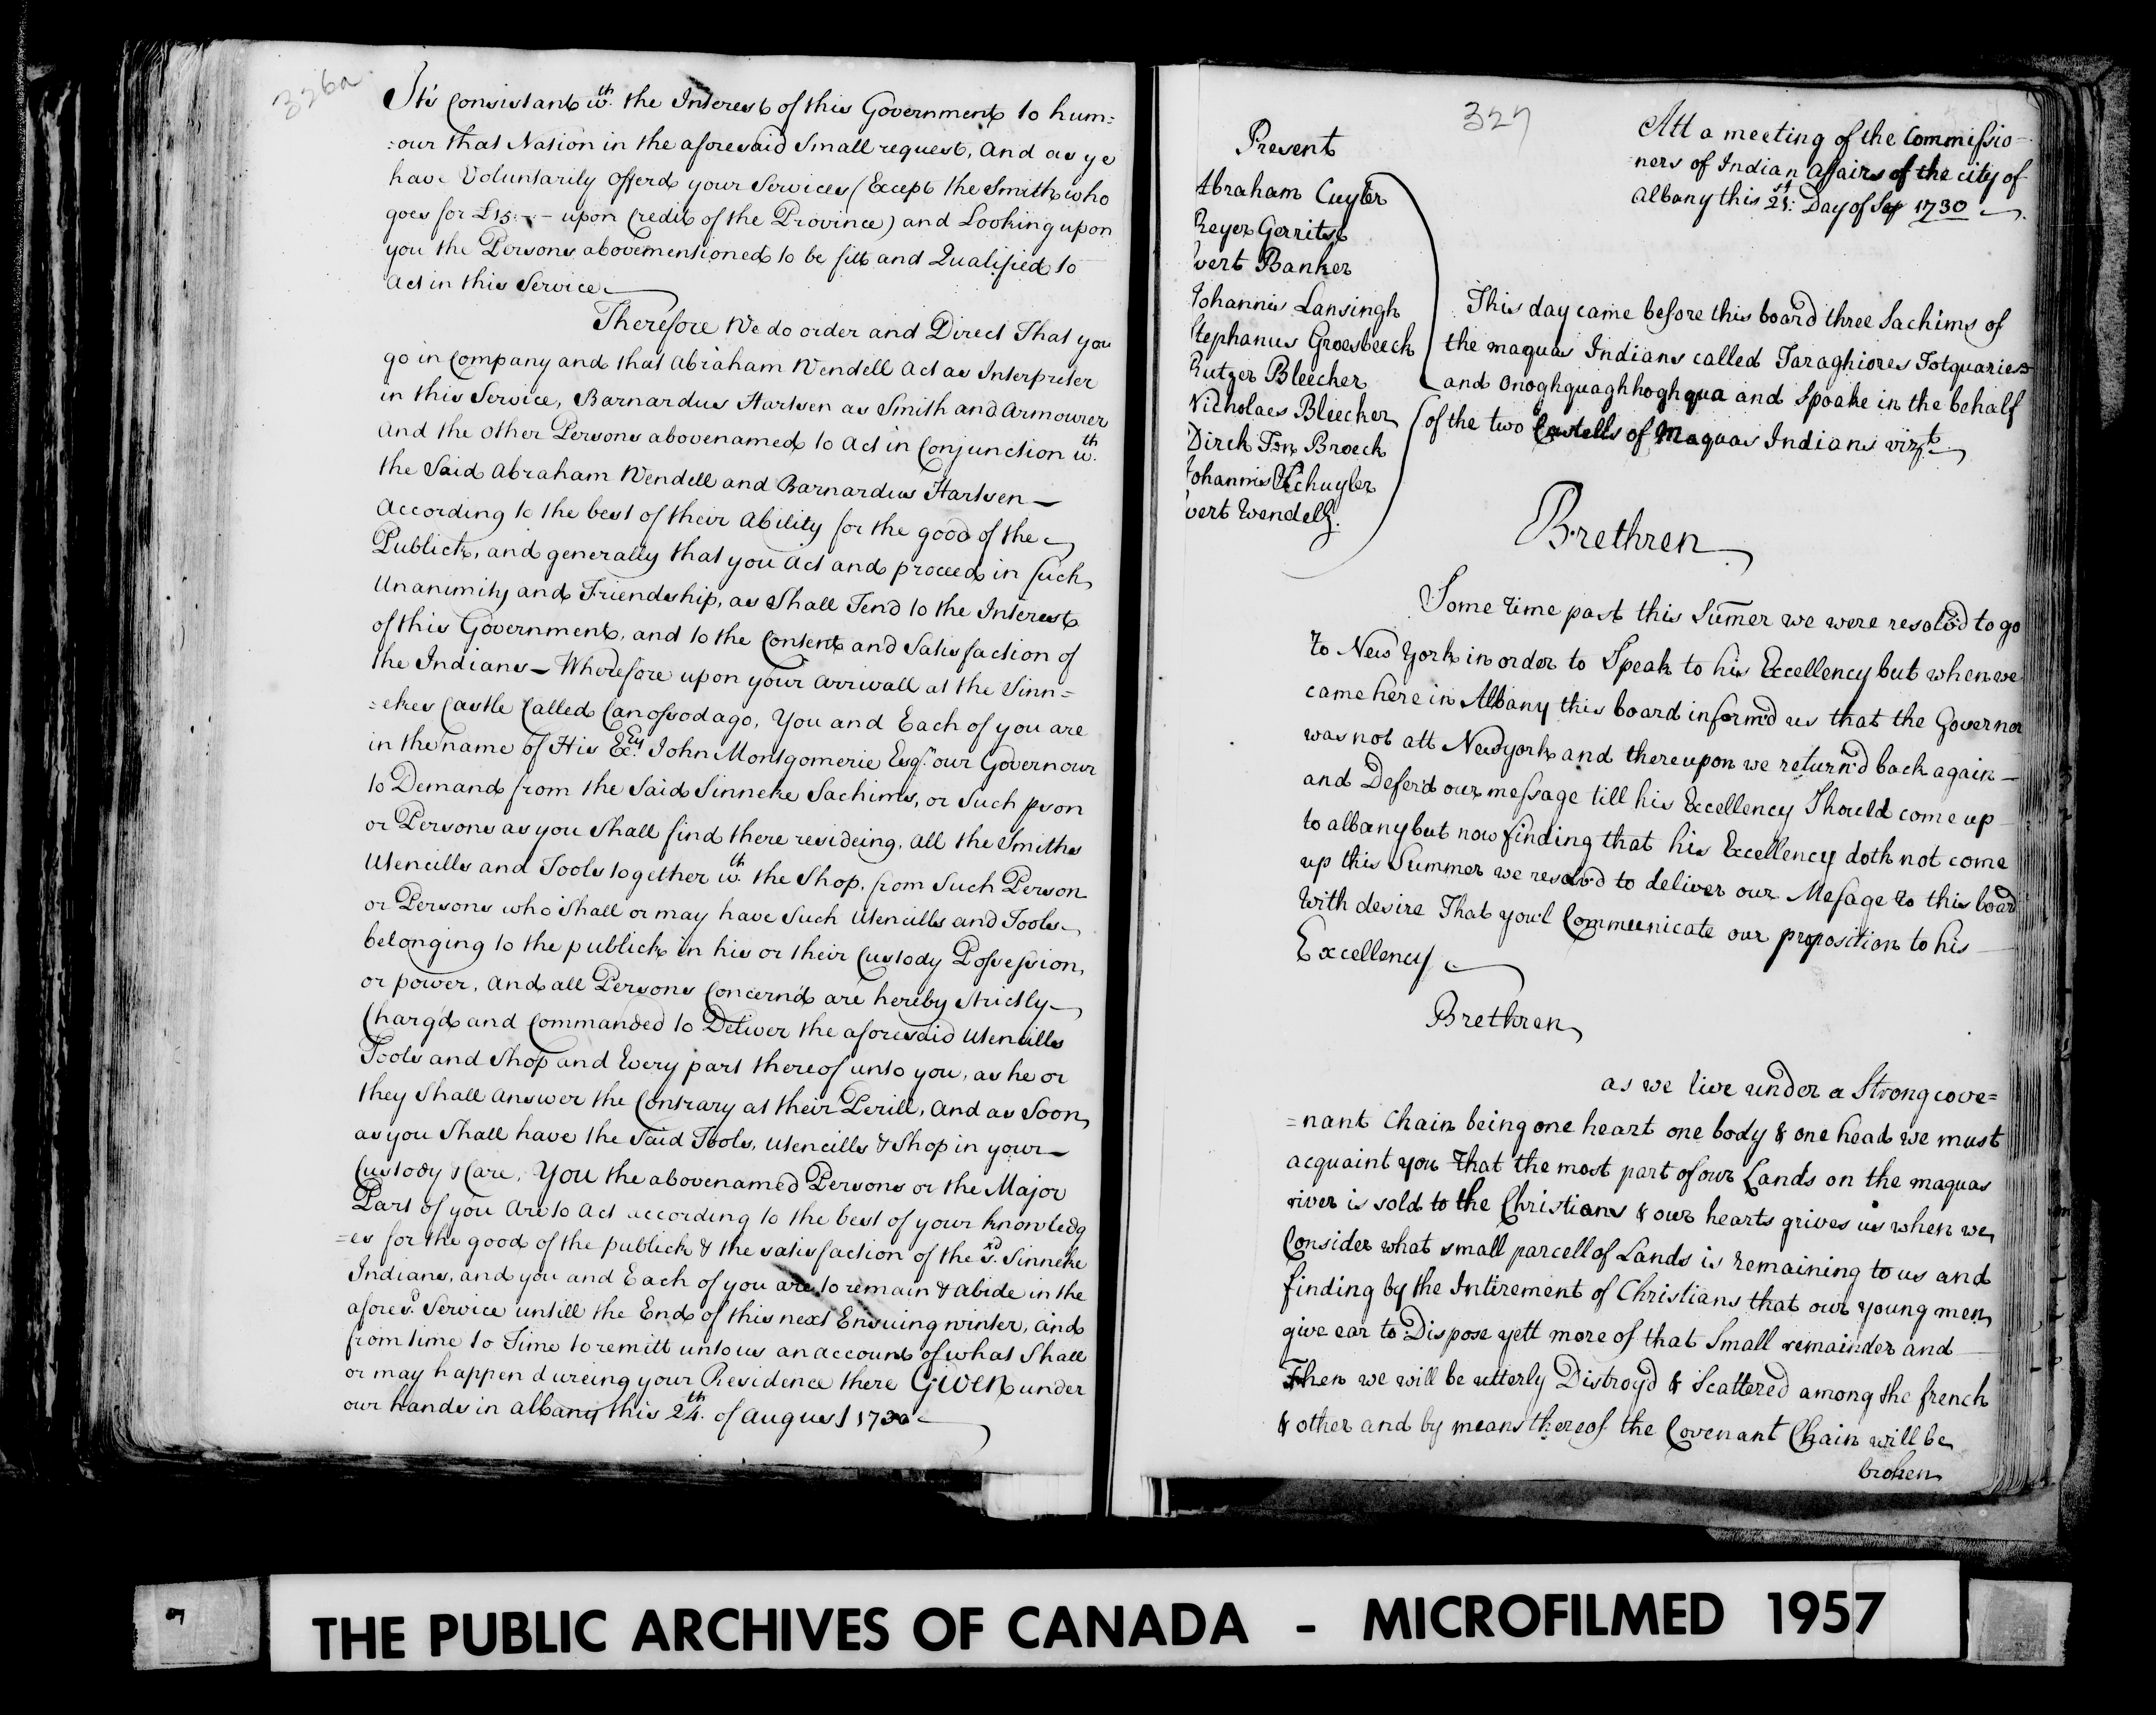 326a
It's Consistant wth. the Interest of this Government to hum=
=our that Nation in the aforesaid Small request, And as ye
have Voluntarily offerd your Services (Except the Smith who
goes for £15:-:- upon Credit of the Province) and Looking upon
you the Persons abovementioned to be fitt and Qualified to
Act in this Service
Therefore We do order and Direct That you
go in Company and that Abraham Wendell Act as Interpreter
in this Service, Barnardus Hartsen as Smith and Armourer
And the Other Persons abovenamed to Act in Conjunction wth.
the Said Abraham Wendell and Barnardus Hartsen
According to the best of their Ability for the good of the
Publick, and generally that you Act and proceed in Such
Unanimity and Friendship, as Shall Tend to the Interest
of this Government, and to the Content and Satisfaction of
the Indians – Wherefore upon your Arrivall at the Sinn=
=ekes Castle Called Canossodago, You and Each of you are
in the name of His Excy. John Montgomerie Esqr. our Governour
to Demand from the Said Sinneke Sachims, or Such pson
or Persons as you Shall find there resideing, All the Smiths
Utencills and Tools together wth. the Shop, from Such Person
or Persons who Shall or may have Such Utencills and Tools
belonging to the publick in his or their Custody Possession,
or power, And all Persons Concern'd are hereby Strictly
Charg'd and Commanded to Deliver the aforesaid Utencills
Tools and Shop and Every part thereof unto you, as he or
they Shall Answer the Contrary at their Perill, And as Soon
as you Shall have the Said Tools, Utencills & Shop in your
Custody & Care, You the abovenamed Persons or the Major
Part of you Are to Act according to the best of your knowledg
=es for the good of the publick & the satisfaction of the sd. Sinneke
Indians, and you and Each of you are to remain & Abide in the
afores'd. Service untill the End of this next Ensuing winter, And
from time to Time to remitt unto us an account of what Shall
or may happen dureing your Residence there Given under
our hands in Albany this 24th. of August 1730
327
Att a meeting of the Commissio-
ners of Indian Affairs of the city of
Albany this 21st: Day of Sep 1730
Present
Abraham Cuyler
Reyer Gerritse
vert Banker
Johannis Lansingh
Stephanus Groesbeeck
Rutger Bleecker
Nicholaes Bleecker
Dirck Ten Broeck
Johannis Schuyler
vert Wendell.
This day came before this board three Sachims of
the maquas Indians called Taraghiores Totquaries
and Onoghquaghhoghqua and Spoake in the behalf
of the two Castells of Maquas Indians vizt
Brethren
Some time past this Sumer we were resolv'd to go
to New York in order to Speak to his Excellency but when we
came here in Albany this board inform'd us that the Governor
was not att New york and thereupon we return'd back again
and Defer'd our message till his Excellency Should come up
to albany but now finding that his Excellency doth not come
up this Summer we resolv'd to deliver our Mesage to this board
With desire That you'l Communicate our proposition to his
Excellency
Brethren
as we live under a Strong cove=
=nant Chain being one heart one body & one head we must
acquaint you That the most part of our Lands on the maquas
river is sold to the Christians & our hearts grives us when we
Consider what small parcell of Lands is remaining to us and
finding by the Intirement of Christians that our young men
give ear to Dispose yett more of that Small remainder and
Then we will be utterly Distroyd & Scattered among the french
& other and by means thereof the Covenant Chain will be
broken
THE PUBLIC ARCHIVES OF CANADA - MICROFILMED 1957